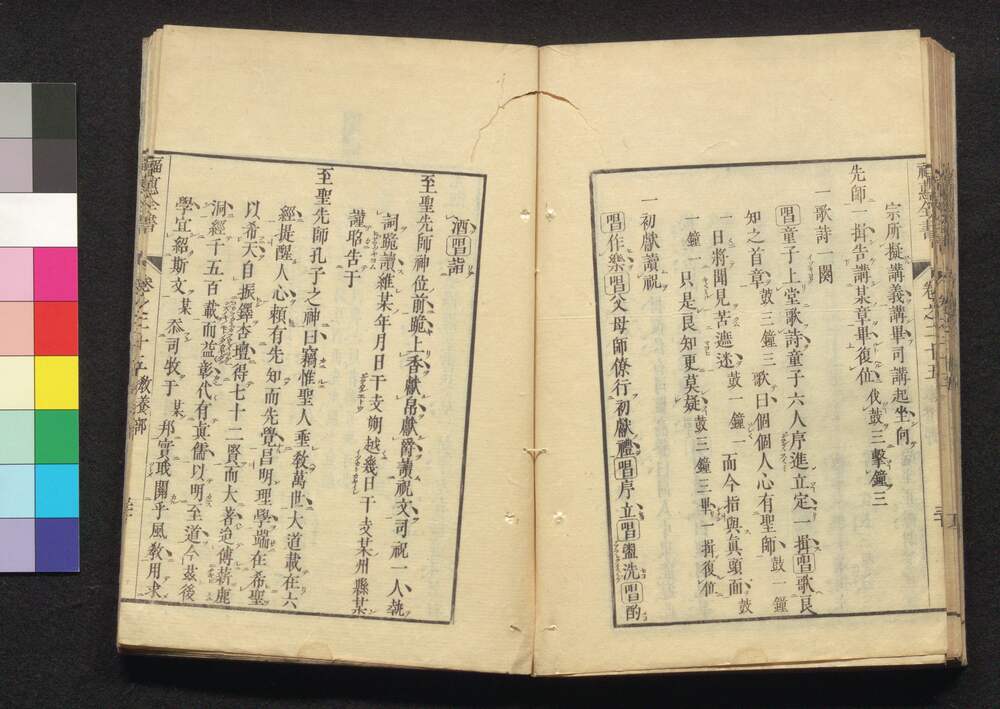 福惠全書 卷之二十五
宗所擬講義講畢司講起坐向
先師一揖告講某章畢復位伐鼓三擊鐘三
一歌詩一闋
唱童子上堂歌詩童子六人序進立定一揖唱歌良
知之首章鼓三鐘三歌曰個個人心有聖師鼓一鐘
一日將聞見苦遮迷鼓一鐘一而今指與真頭面鼓
一鐘一只是良知更莫疑鼓三鐘三畢一揖復位
一初獻讀祝
唱作樂唱父母師僚行初獻禮唱序立唱盥洗唱酌
酒唱詣
至聖先師神位前跪上香獻帛獻爵讀祝文司祝一人執
詞跪讀維某年月日干支朔越幾日干支某州縣某
謹昭告于
至聖先師孔子之神曰竊惟聖人垂教萬世大道載在六
經提醒人心賴有先知而先覺昌明理學端在希聖
以希天自振鐸杏壇得七十二賢而大著迨傳薪鹿
洞經千五百載而益彰代有真儒以明至道今茲後
學宜紹斯文某忝司牧于某邦實職開乎風教用求
福惠全書 卷之二十五 教養部